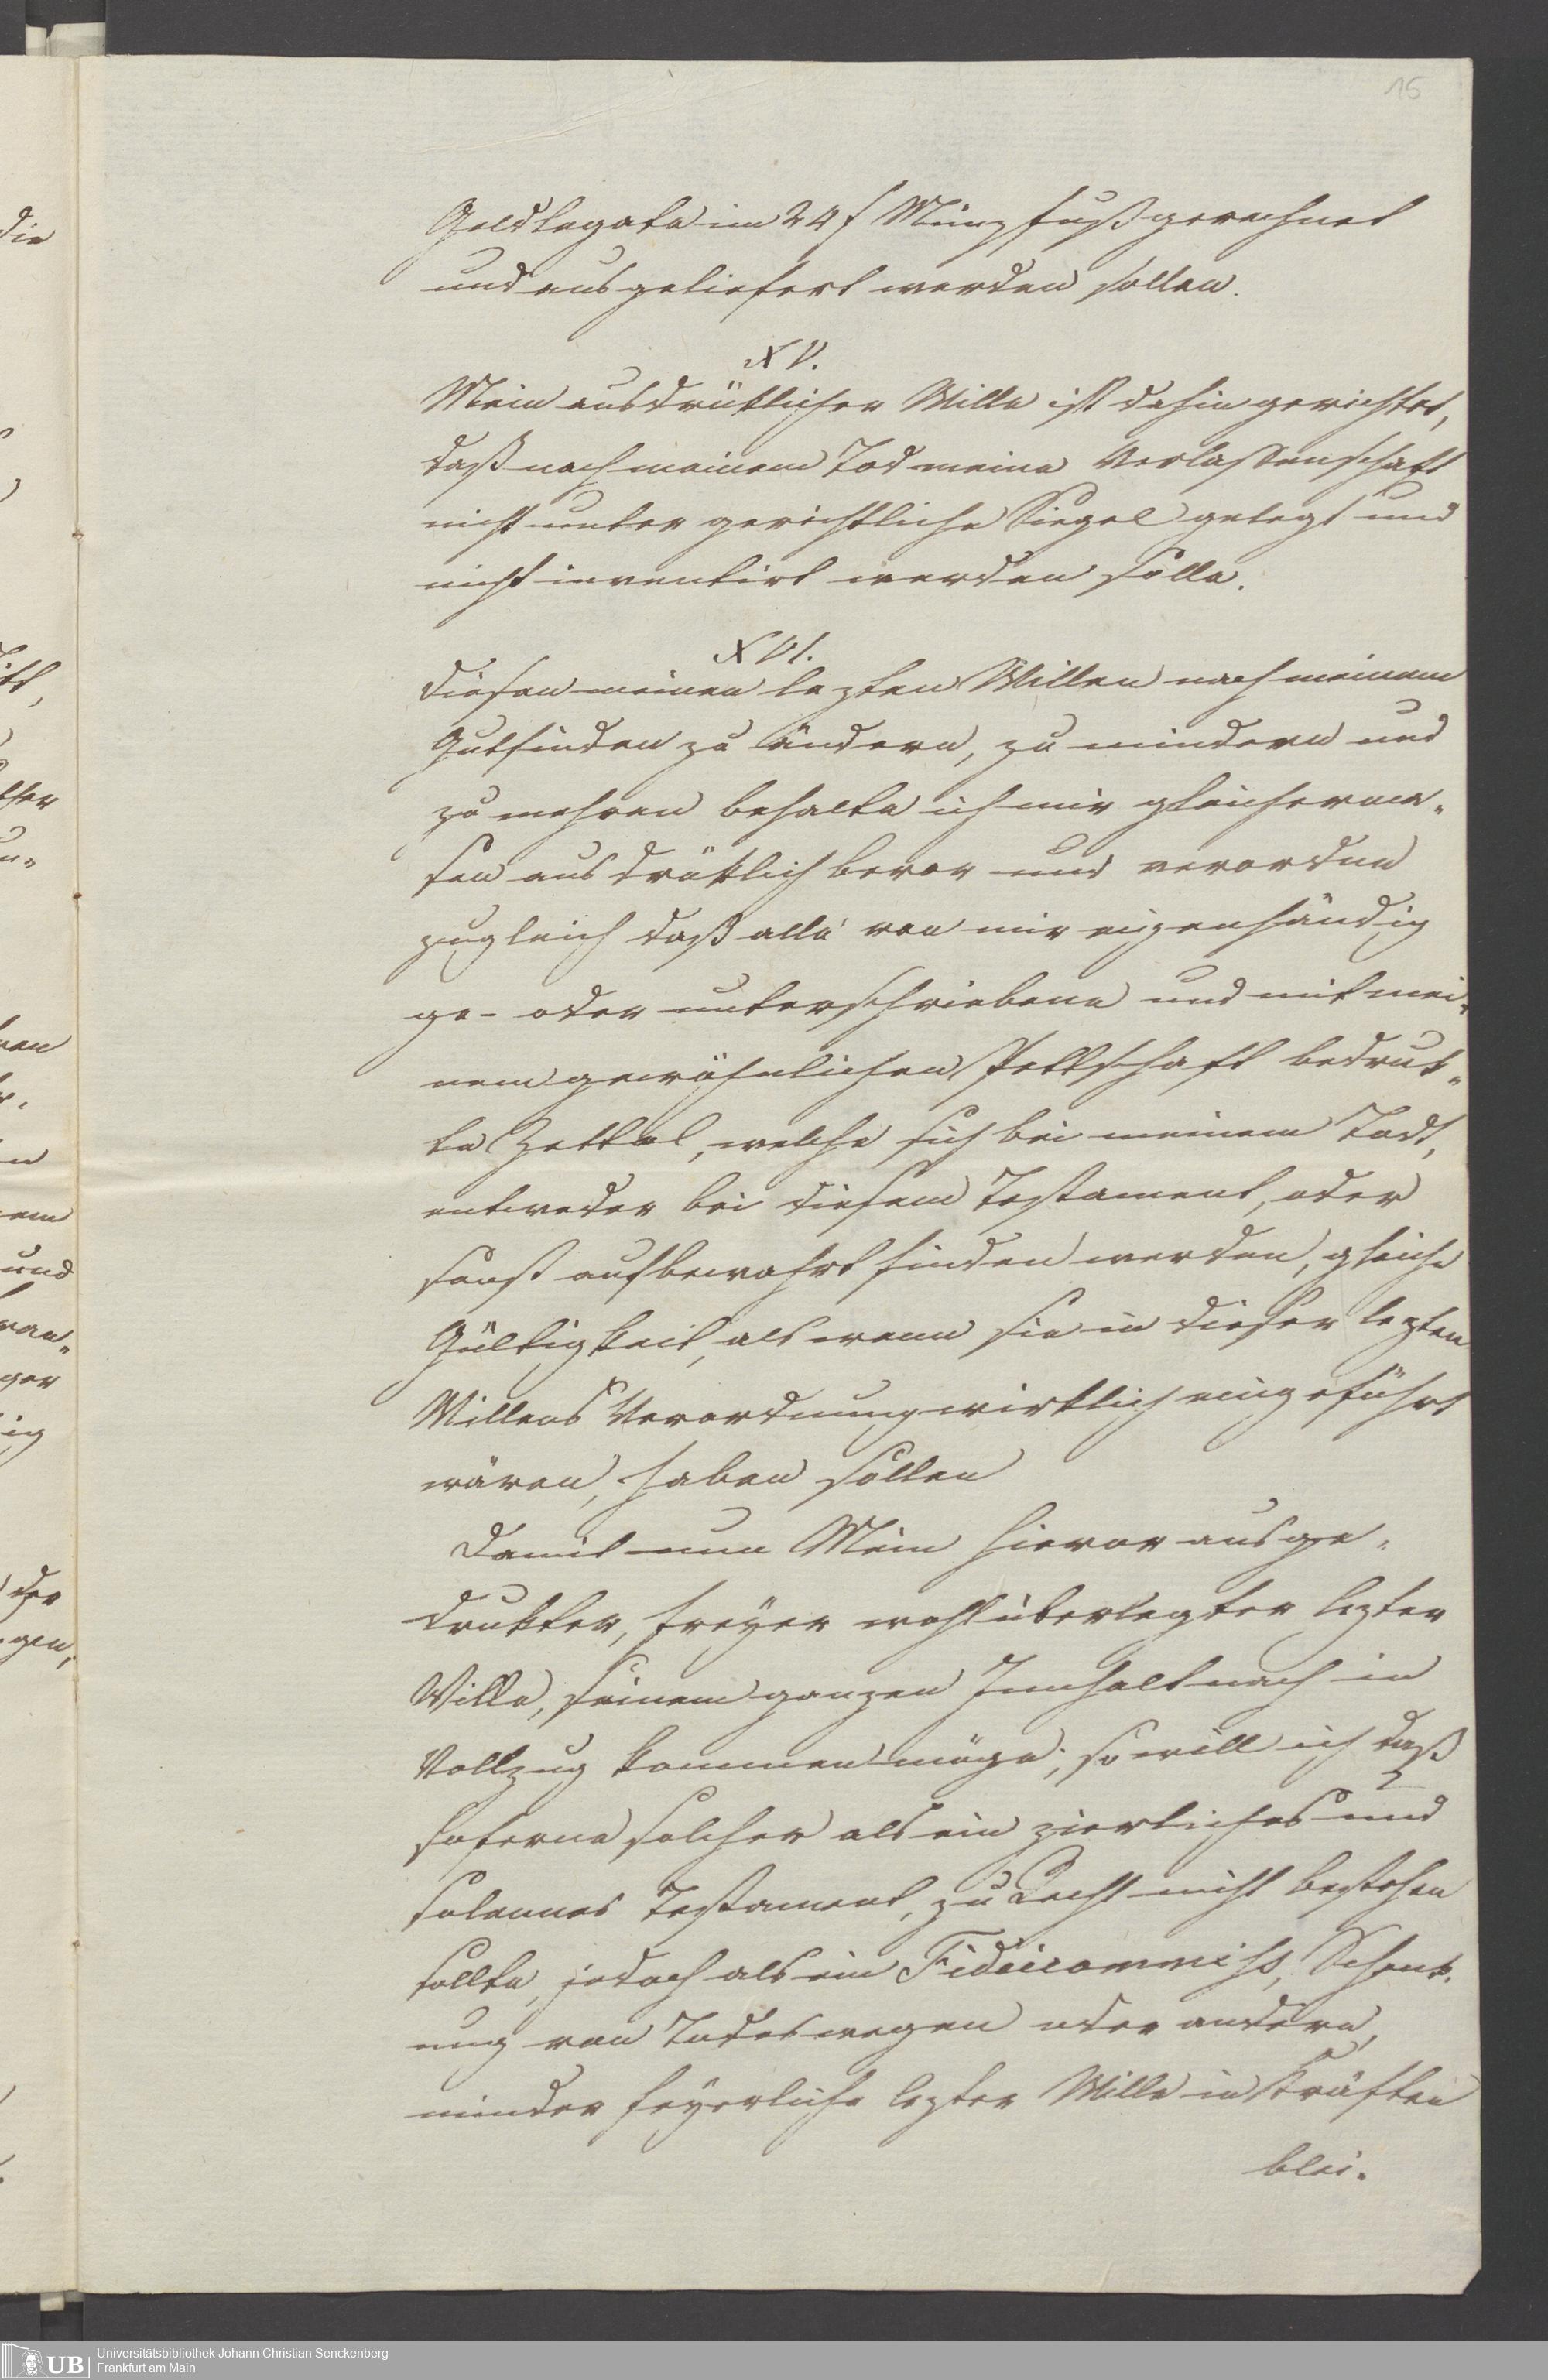 15
Geldlegate im 24 f Münzfuß gerechnet
und ausgeliefert werden sollen.
XV.
Mein ausdrüklicher Wille ist dahin gerichtet,
daß nach meinem Tod meine Verlassenschaft
nicht unter gerichtliche Siegel gelegt und
nicht inventirt werden solle.
XVI.
Diesen meinen lezten Willen nach meinem
Gutfinden zu ändern, zu mindern und
zu mehren behalte ich mir gleicherma-
sen ausdrüklich bevor und verordne
zugleich daß alle von mir eigenhändig
ge- oder unterschriebene und mit mei-
nem gewöhnlichen Pettschaft bedruk-
te Zettel, welche sich bei meinem Todt,
entweder bei diesem Testament, oder
sonst aufbewahrt finden werden, gleiche
Gültigkeit, als wenn sie in dieser lezten
Willens Verordnung wirklich eingeführt
wären, haben sollen
Damit nun Mein hievor ausge-
drukter, freyer wohlüberlegter lezter
Wille, seinem ganzen Innhalt nach in
Vollzug kommen möge; so will ich daß
soferne solcher als ein zierliches und
solennes Testament, zu Recht nicht bestehen
sollte, jedoch als ein Fideicommiss, Schenk-
ung von Todeswegen oder andern,
minder feyerliche lezter Wille in Kräften
blei-
die
und
der
gen,
Universitätsbibliothek Johann Christian Senckenberg
Frankfurt am Main
UB